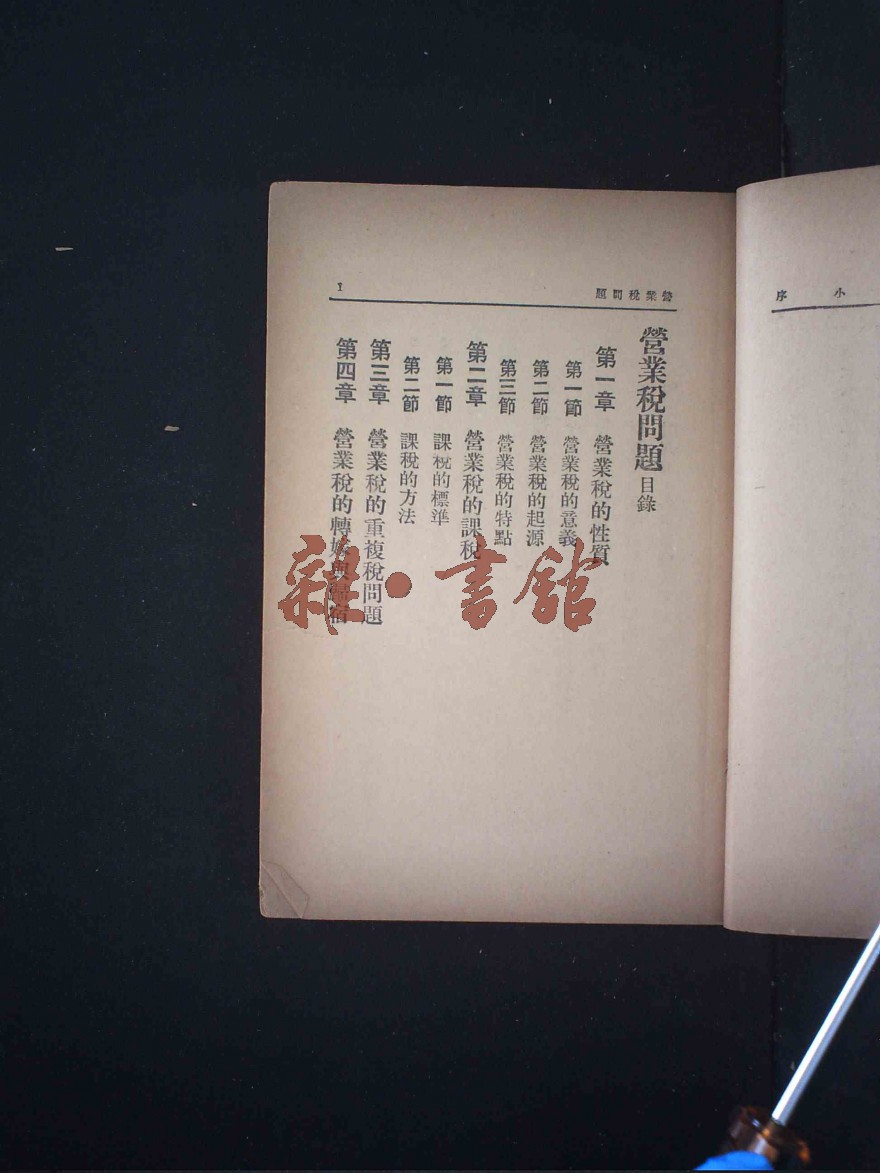 小序
營業稅問題
1
營業稅問題 目錄
第一章 營業稅的性質
第一節 營業稅的意義
第二節 營業稅的起源
第三節 營業稅的特點
第二章 營業稅的課稅
第一節 課稅的標準
第二節 課稅的方法
第三章 營業稅的重複稅問題
第四章 營業稅的轉嫁與歸宿
雜·書館